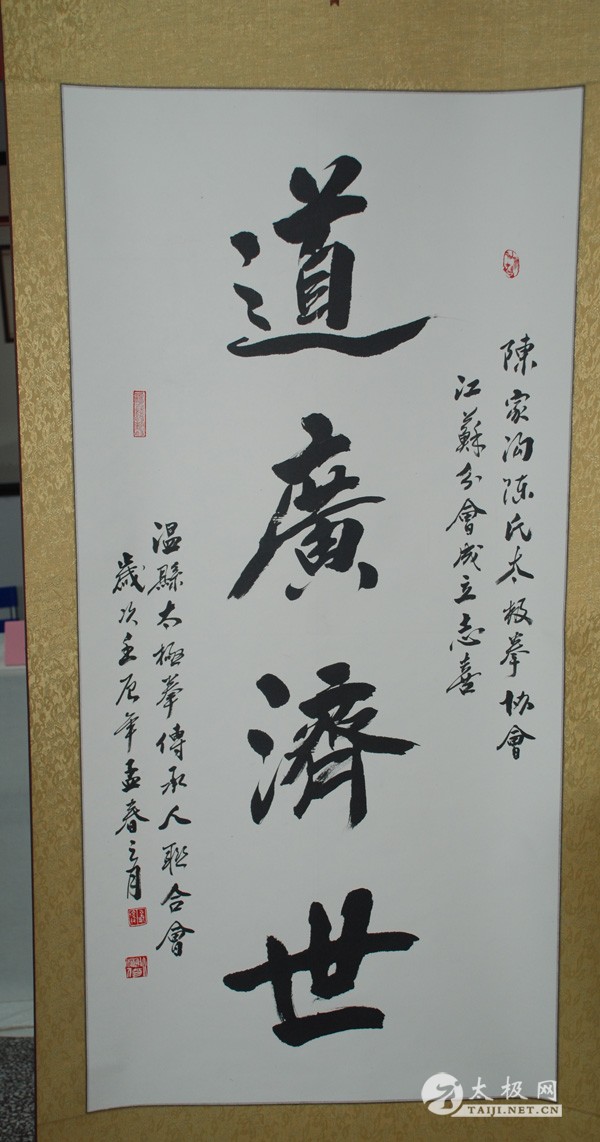 陳家沟陳氏太极拳协會
江蘇分會成立志喜
道廣濟世
温縣太極拳傳承人聯合會
歲次壬辰年孟春之月
太极网
TAIJI.NET.CN